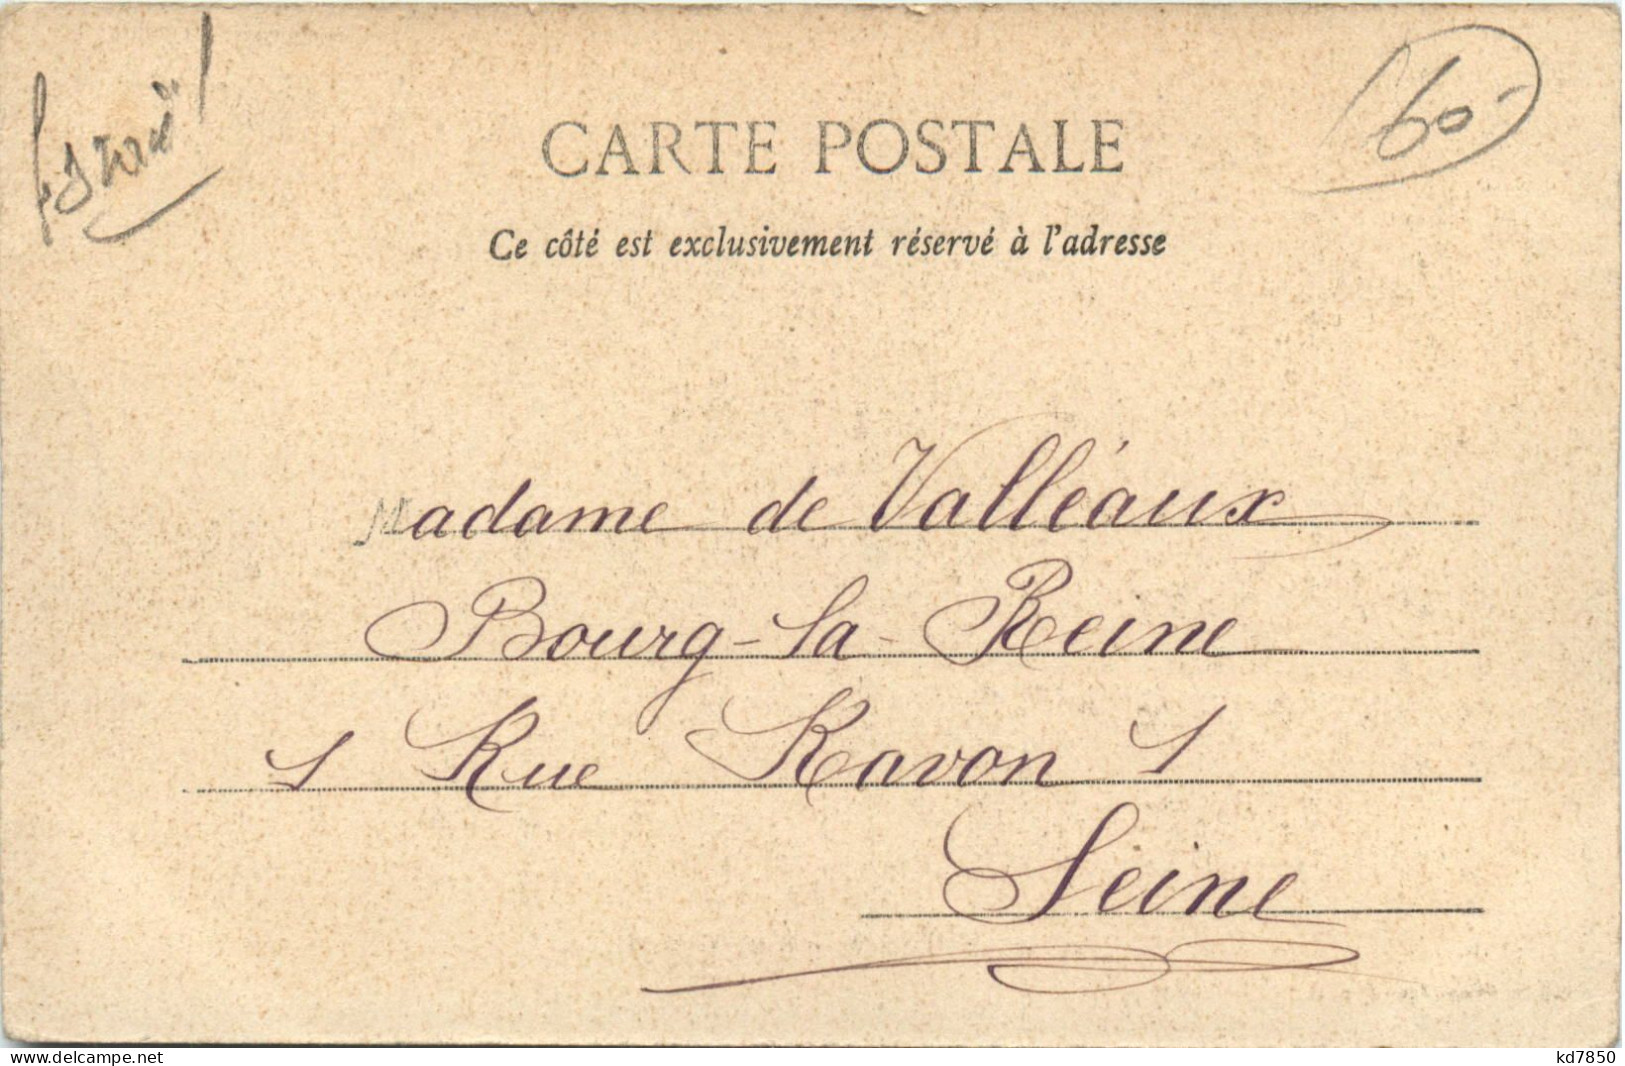 60-
CARTE POSTALE
Ce côté est exclusivement réservé à l'adresse
Madame de Valléaux
Bourg-la-Reine
1 Rue Ravon 1
Seine
www.delcampe.net
kd7850